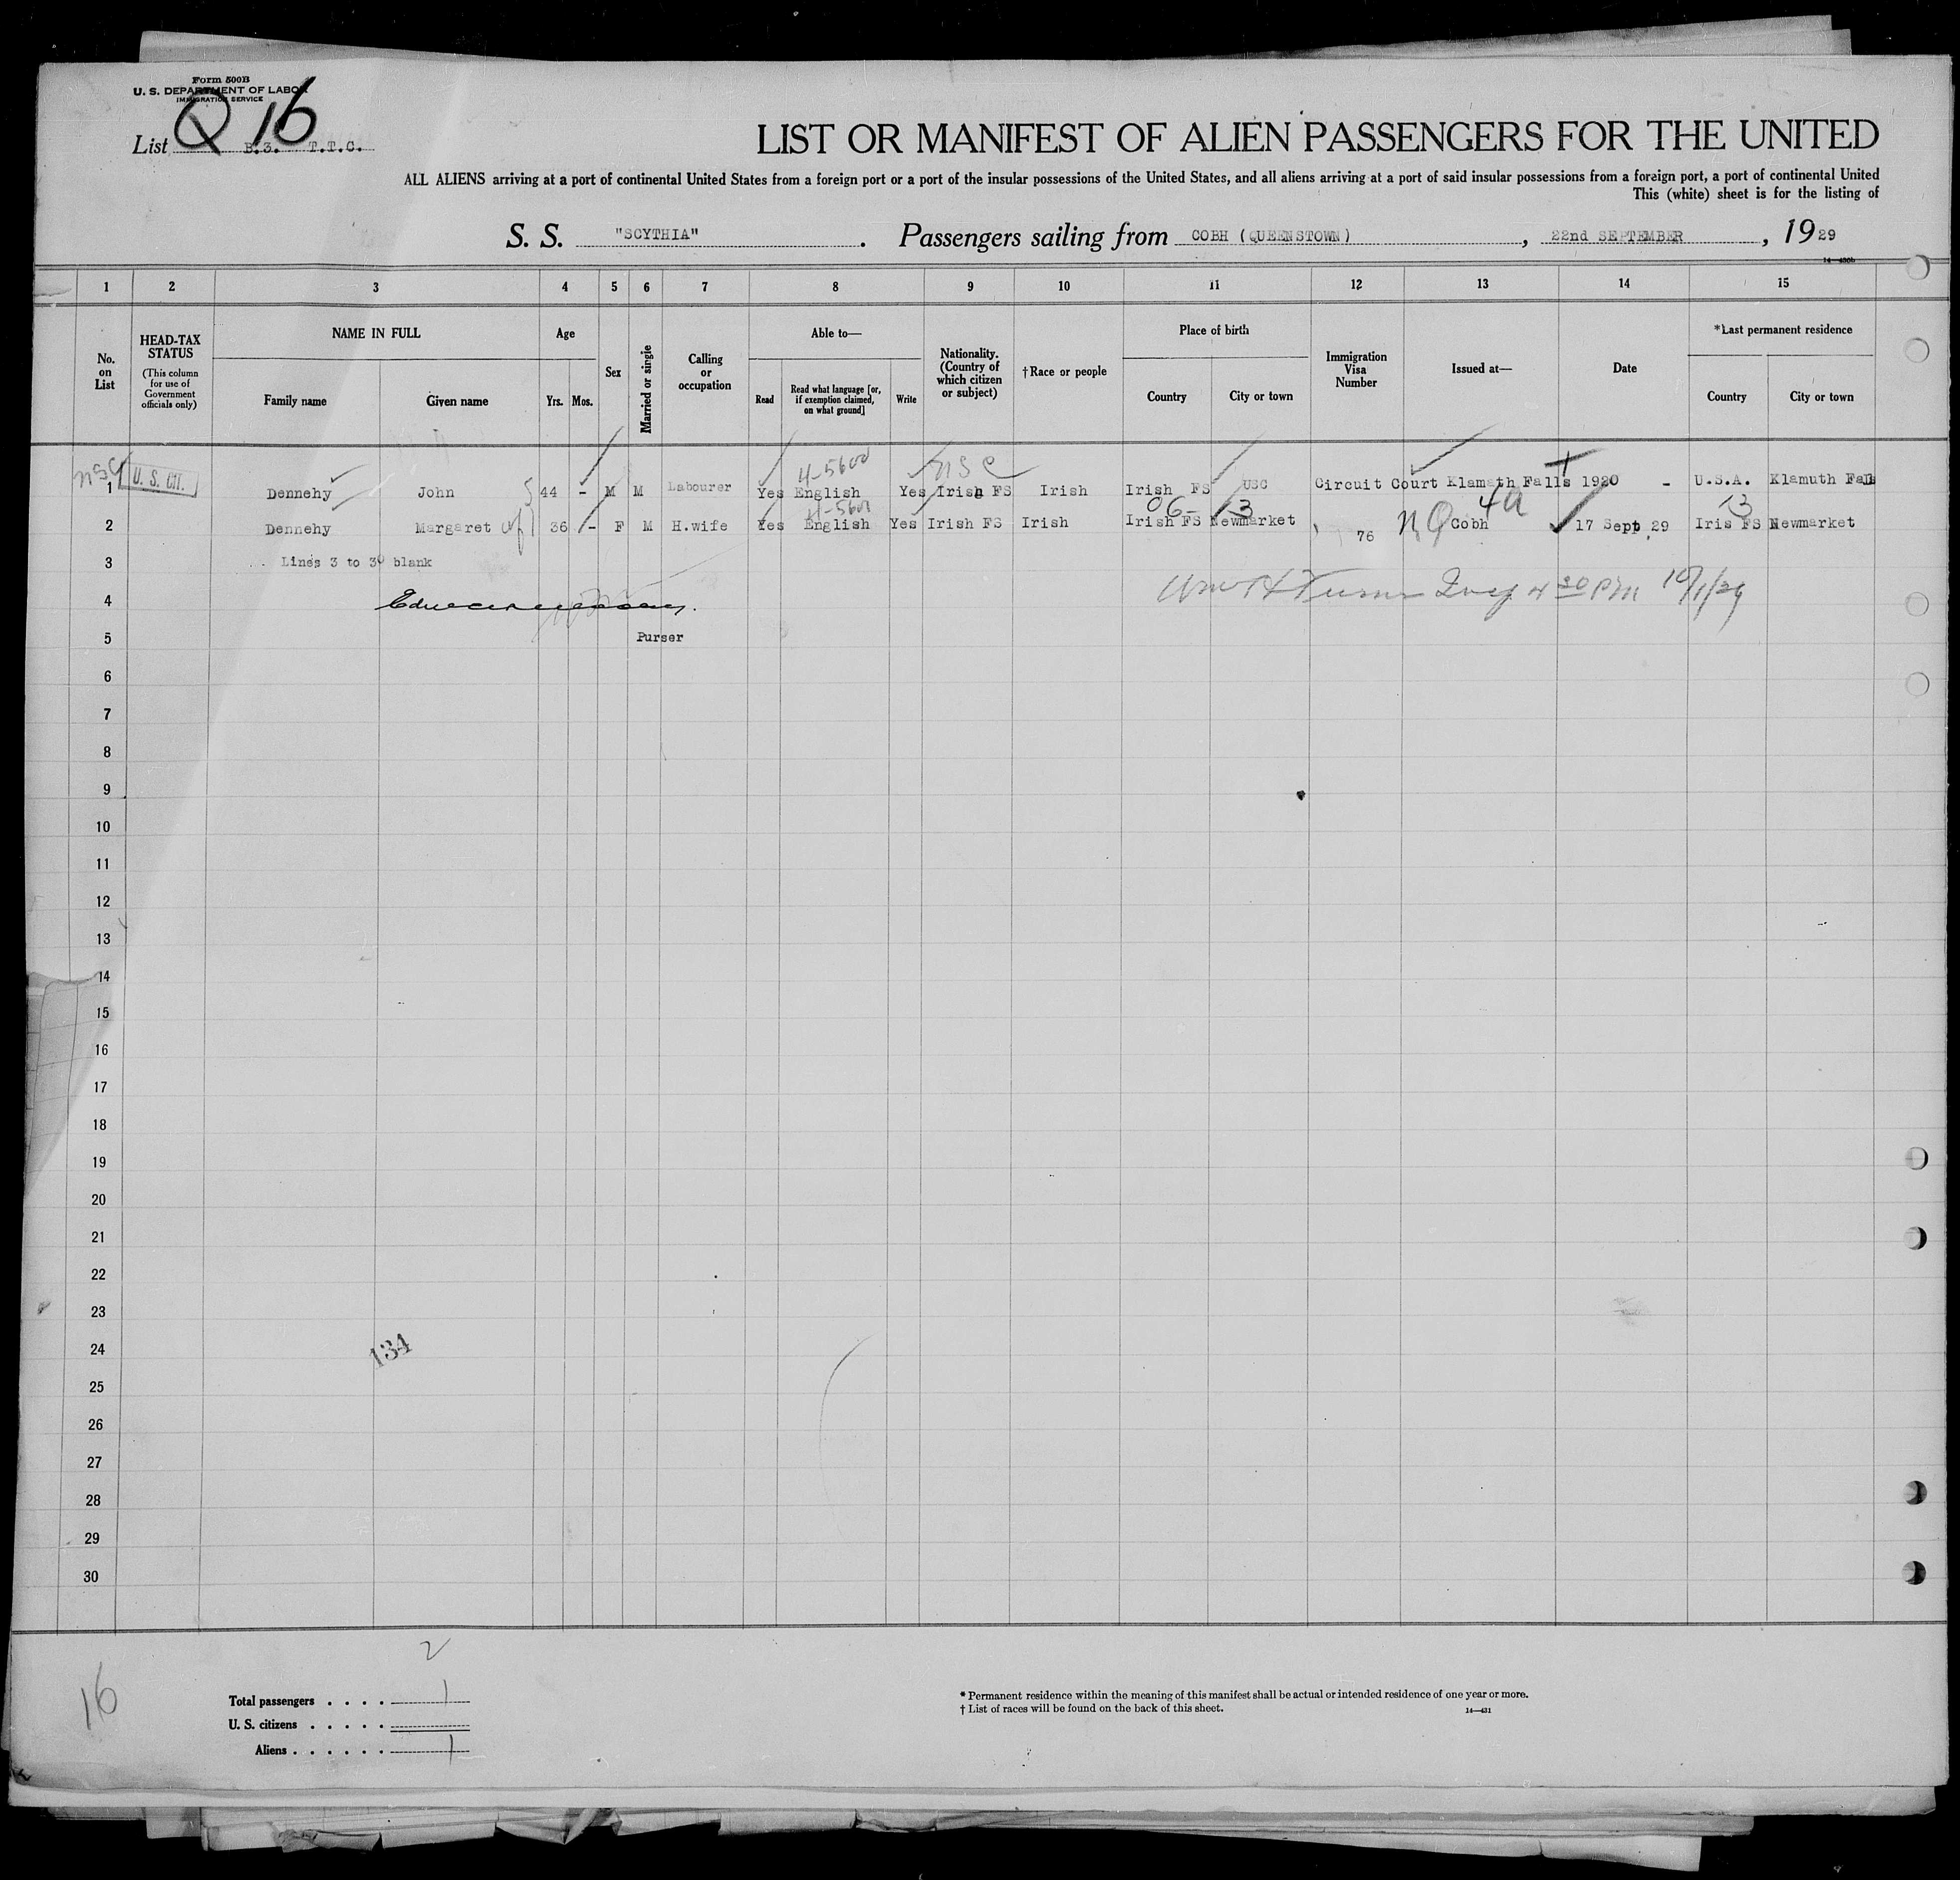 Form 500B
U. S. DEPARTMENT OF LABOR
IMMIGRATION SERVICE
Q 16
List B.3. T.T.C.
LIST OR MANIFEST OF ALIEN PASSENGERS FOR THE UNITED
ALL ALIENS arriving at a port of continental United States from a foreign port or a port of the insular possessions of the United States, and all aliens arriving at a port of said insular possessions from a foreign port, a port of continental United
This (white) sheet is for the listing of
S. S. "SCYTHIA" . Passengers sailing from COBH (QUEENSTOWN) , 22nd SEPTEMBER , 1929
1 2 3 4 5 6 7 8 9 10 11 12 13 14 15
No. on List
HEAD-TAX STATUS
(This column for use of Government officials only)
NAME IN FULL
Family name Given name
Age
Yrs. Mos.
Sex
Married or single
Calling or occupation
Able to—
Read
Read what language [or, if exemption claimed, on what ground]
Write
Nationality. (Country of which citizen or subject)
†Race or people
Place of birth
Country City or town
Immigration Visa Number
Issued at—
Date
*Last permanent residence
Country City or town
4-5600 USC
1 U. S. CIT. Dennehy John 44 - M M Labourer Yes English Yes Irish FS Irish Irish FS USC Circuit Court Klamath Falls 1920 - U.S.A. Klamuth Falls
06- 3 4a 3
2 Dennehy Margaret 36 - F M H.wife Yes English Yes Irish FS Irish Irish FS Newmarket 76 Cobh 17 Sept 29 Iris FS Newmarket
3 Lines 3 to 30 blank
4 4 30 PM 10/1/29
5 Purser
6
7
8
9
10
11
12
13
14
15
16
17
18
19
20
21
22
23
24 134
25
26
27
28
29
30
2
16
Total passengers . . . . 1
U. S. citizens . . . . .
Aliens . . . . . . 1
* Permanent residence within the meaning of this manifest shall be actual or intended residence of one year or more.
† List of races will be found on the back of this sheet.
14—431